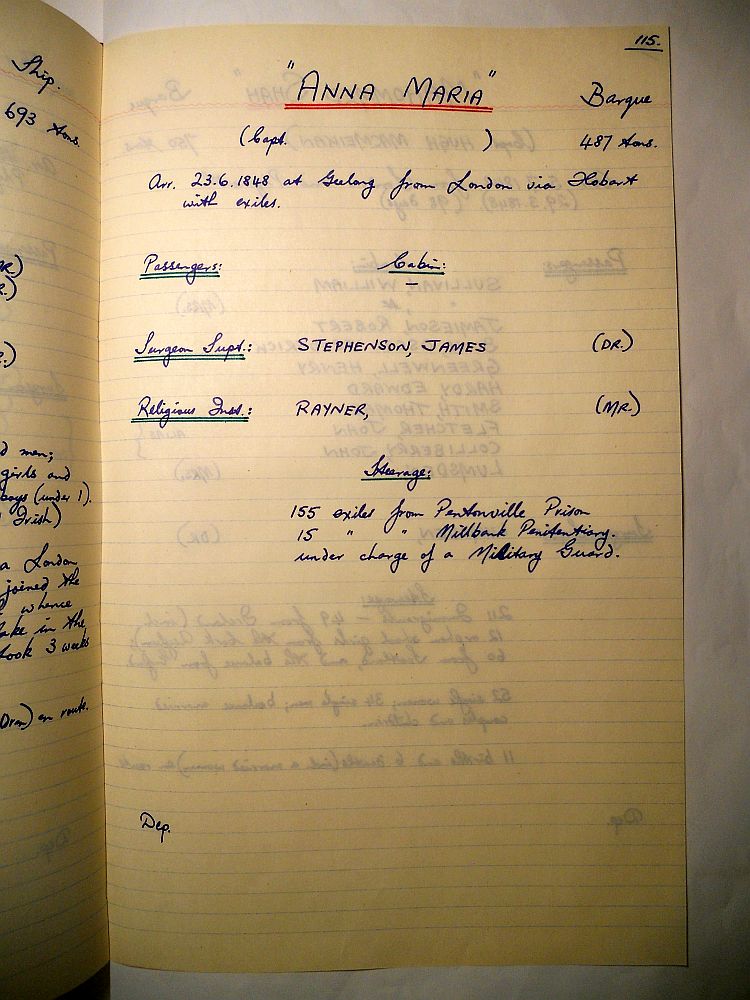 Ship.
693 tons.
R.)
R.)
d men;
girls and
boys (under 1).
Irish)
a London
joined the
whence
ake in the
took 3 weeks
Dran) en route.
115.
"ANNA MARIA" Barque
(Capt. ) 487 tons.
Arr. 23.6.1848 at Geelong from London via Hobart
with exiles.
Passengers: Cabin:
—
Surgeon Supt.: STEPHENSON, JAMES (DR.)
Religious Inst.: RAYNER, (MR.)
Steerage:
155 exiles from Pentonville Prison
15 " " Millbank Penitentiary.
under charge of a Military Guard.
Dep.